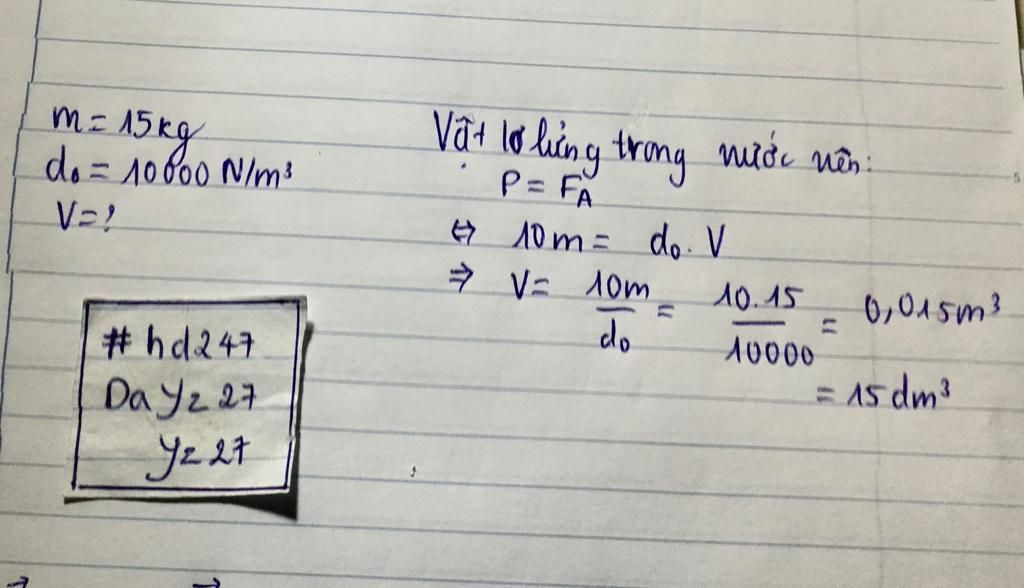 m = 15kg
d₀ = 10000 N/m³
V = ?
Vật lơ lửng trong nước nên:
P = F_A
⇔ 10m = d₀. V
⇒ V = 10m/d₀ = 10.15/10000 = 0,015m³
= 15 dm³
#hd247
Dayz27
yz27